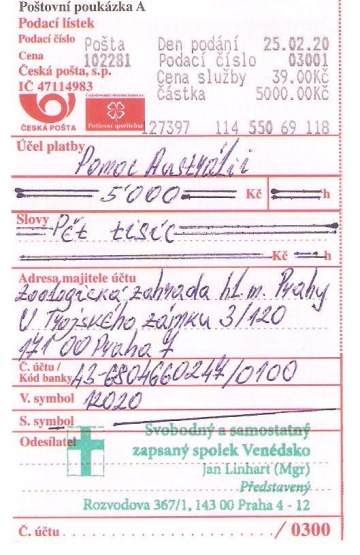 Poštovní poukázka A
Podací lístek
Podací číslo Pošta Den podání 25.02.20
102281 Podací číslo 03001
Cena
Cena služby 39.00Kč
Česká pošta, s.p.
Částka 5000.00Kč
IČ 47114983
ČESKÁ POŠTA Poštovní spořitelna
127397 114 550 69 118
Účel platby
Pomoc Austrálii
5'000 Kč h
Slovy
Pět tisíc
Kč h
Adresa majitele účtu
Zoologická zahrada hl. m. Prahy
U Trojského zámku 3/120
171 00 Praha 7
Č. účtu /
Kód banky 43-6804660247/0100
V. symbol 12020
S. symbol
Odesílatel
Svobodný a samostatný
zapsaný spolek Venédsko
Jan Linhart (Mgr)
Představený
Rozvodova 367/1, 143 00 Praha 4 - 12
Č. účtu . . . . . . . . . . / 0300